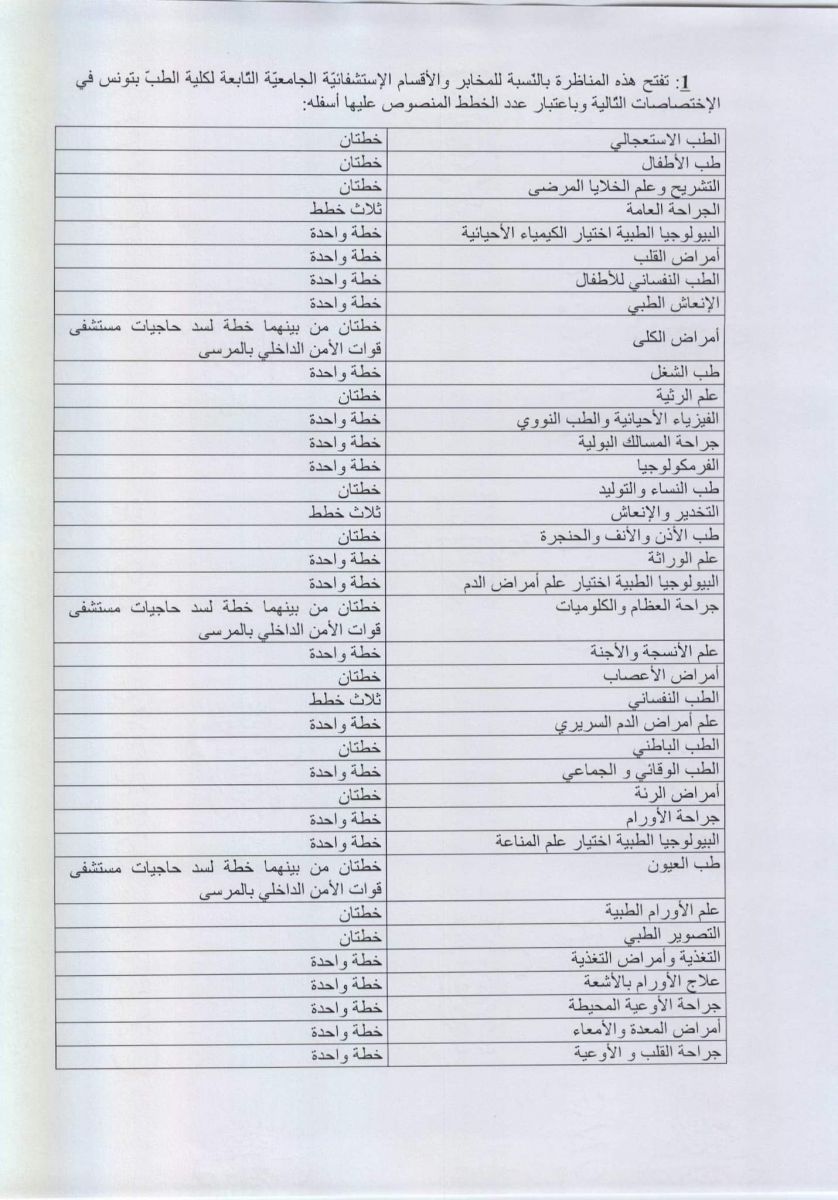 1: تفتح هذه المناظرة بالنّسبة للمخابر والأقسام الإستشفائيّة الجامعيّة التّابعة لكلية الطبّ بتونس في
الإختصاصات التّالية وباعتبار عدد الخطط المنصوص عليها أسفله:
الطب الاستعجالي خطتان
طب الأطفال خطتان
التشريح وعلم الخلايا المرضى خطتان
الجراحة العامة ثلاث خطط
البيولوجيا الطبية اختيار الكيمياء الأحيائية خطة واحدة
أمراض القلب خطة واحدة
الطب النفساني للأطفال خطة واحدة
الإنعاش الطبي خطة واحدة
أمراض الكلى خطتان من بينهما خطة لسد حاجيات مستشفى
قوات الأمن الداخلي بالمرسى
طب الشغل خطة واحدة
علم الرثية خطتان
الفيزياء الأحيائية والطب النووي خطة واحدة
جراحة المسالك البولية خطة واحدة
الفرمكولوجيا خطة واحدة
طب النساء والتوليد خطتان
التخدير والإنعاش ثلاث خطط
طب الأذن والأنف والحنجرة خطتان
علم الوراثة خطة واحدة
البيولوجيا الطبية اختيار علم أمراض الدم خطة واحدة
جراحة العظام والكلوميات خطتان من بينهما خطة لسد حاجيات مستشفى
قوات الأمن الداخلي بالمرسى
علم الأنسجة والأجنة خطة واحدة
أمراض الأعصاب خطتان
الطب النفساني ثلاث خطط
علم أمراض الدم السريري خطة واحدة
الطب الباطني خطتان
الطب الوقائي و الجماعي خطة واحدة
أمراض الرئة خطتان
جراحة الأورام خطة واحدة
البيولوجيا الطبية اختيار علم المناعة خطة واحدة
طب العيون خطتان من بينهما خطة لسد حاجيات مستشفى
قوات الأمن الداخلي بالمرسى
علم الأورام الطبية خطتان
التصوير الطبي خطتان
التغذية وأمراض التغذية خطة واحدة
علاج الأورام بالأشعة خطة واحدة
جراحة الأوعية المحيطة خطة واحدة
أمراض المعدة والأمعاء خطة واحدة
جراحة القلب و الأوعية خطة واحدة